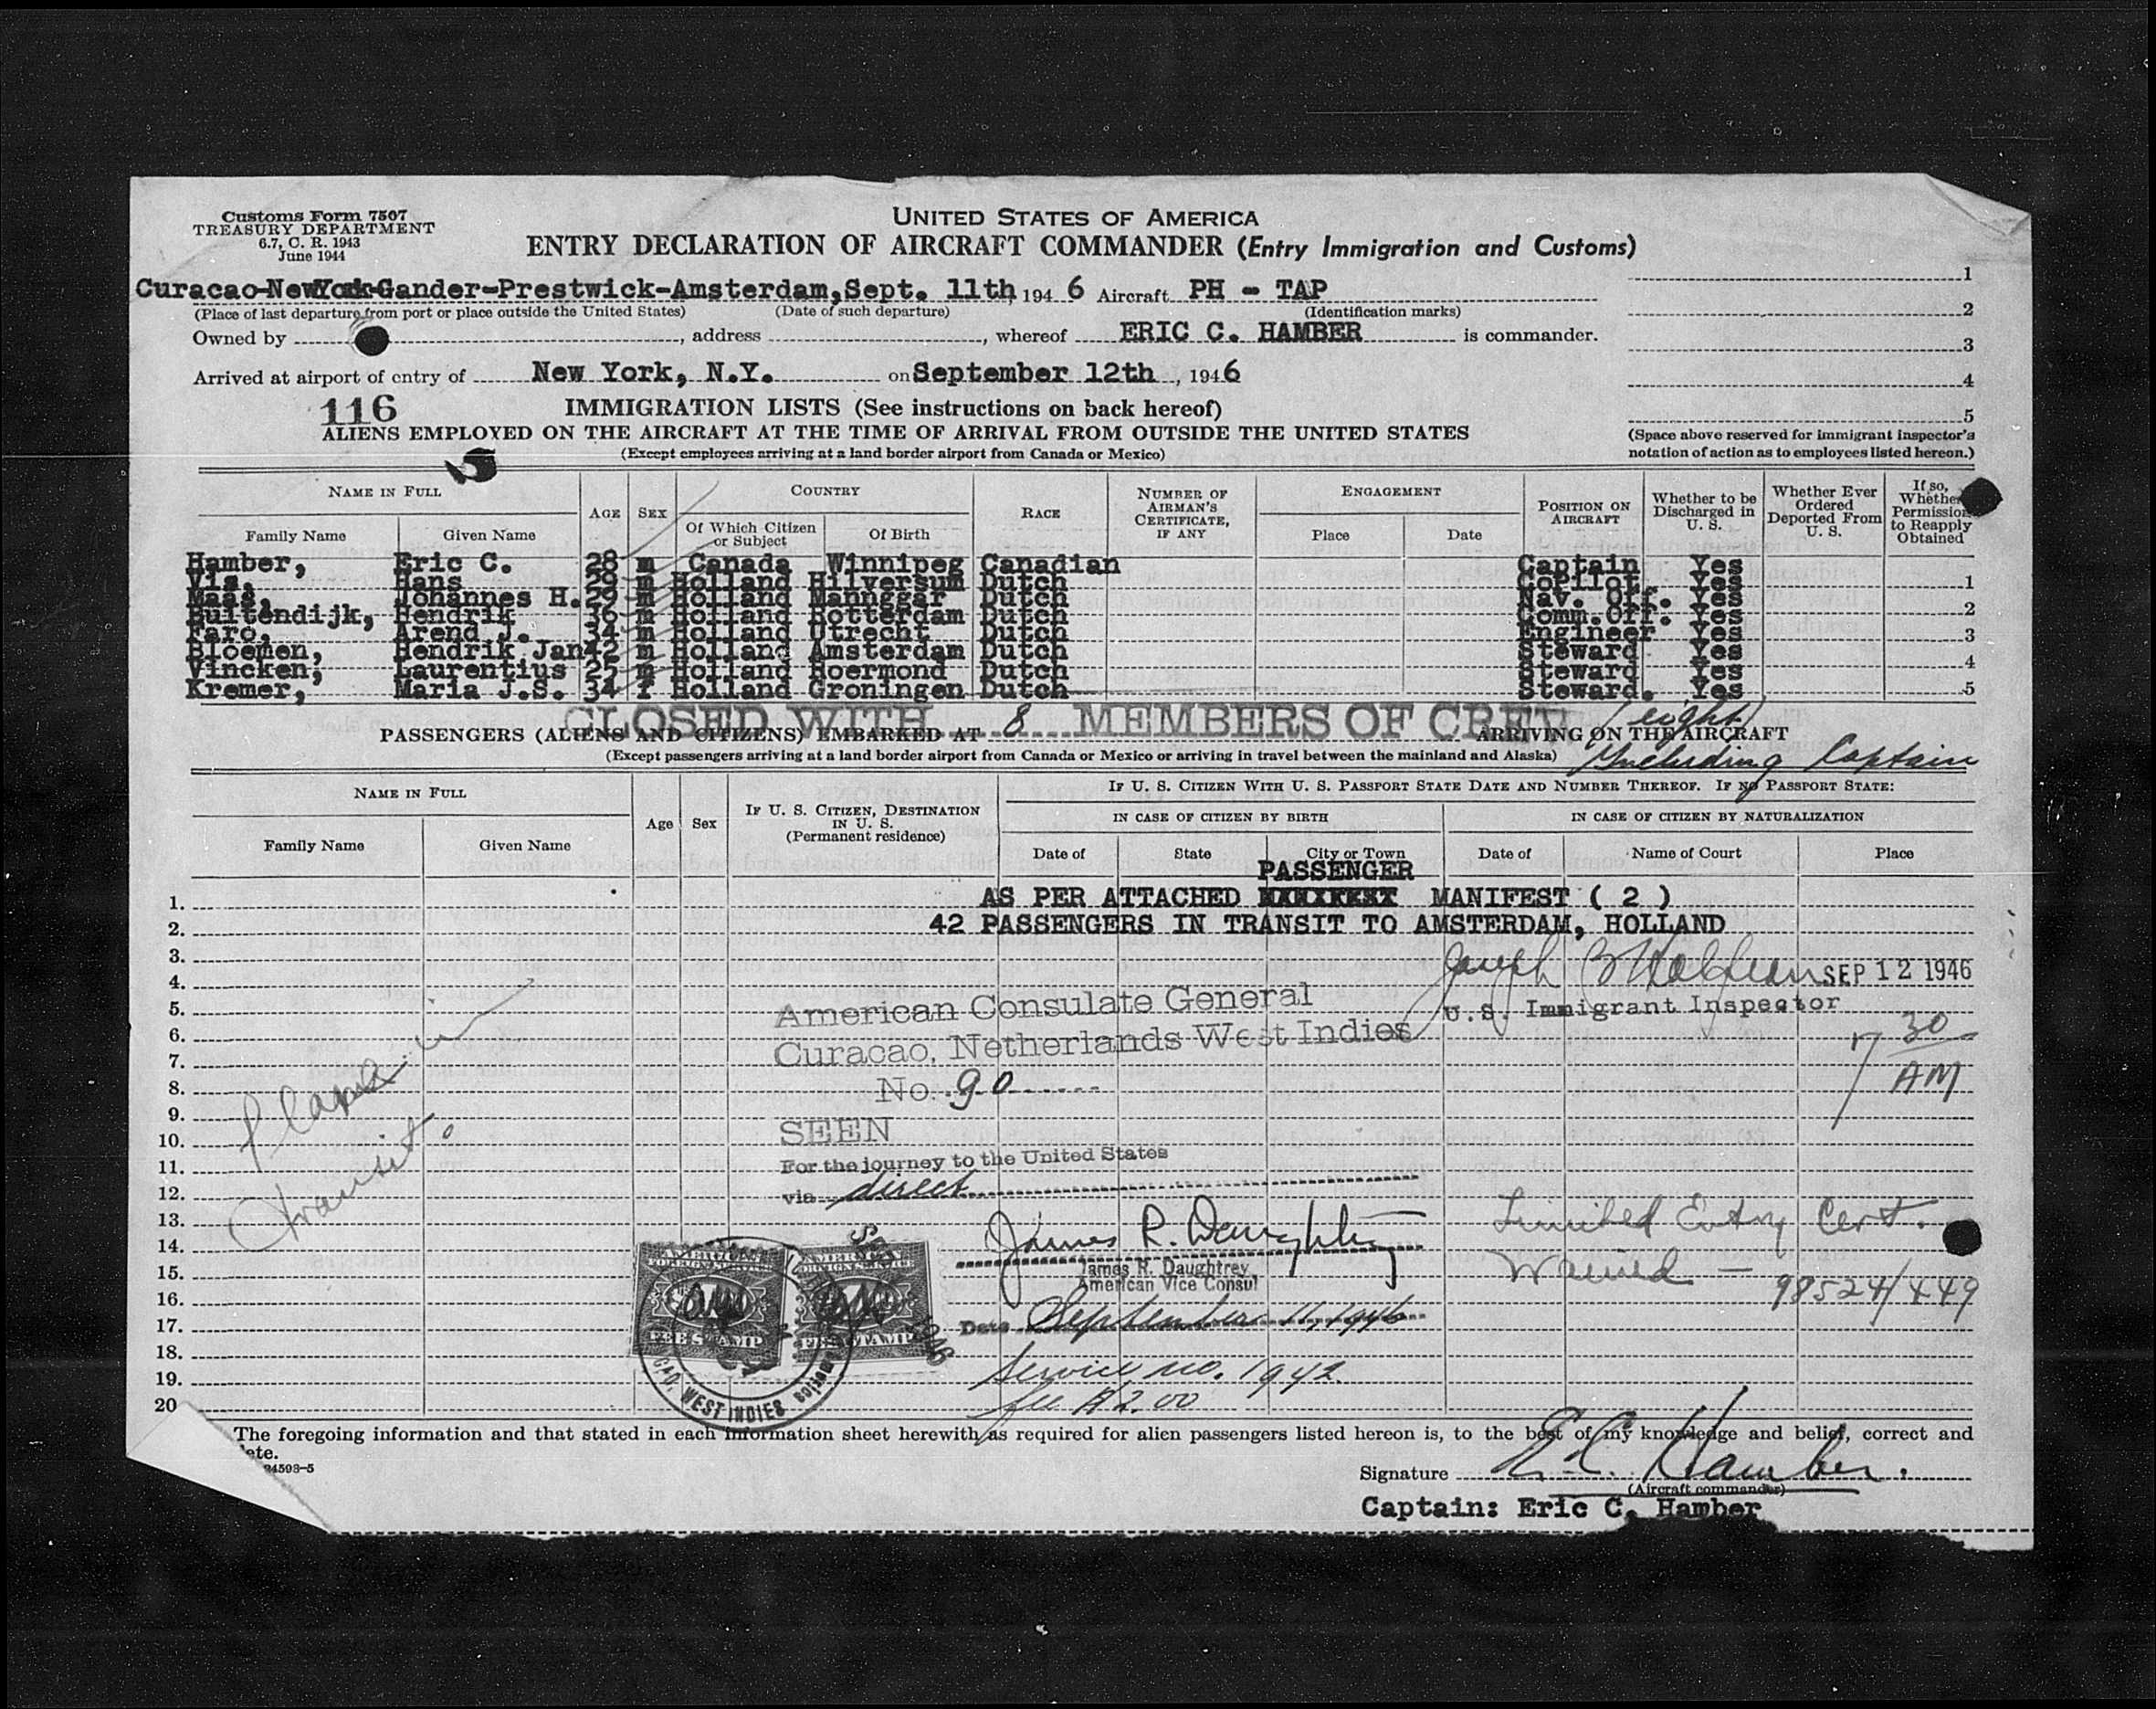 Customs Form 7507
TREASURY DEPARTMENT
6.7, C. R. 1943
June 1944
UNITED STATES OF AMERICA
ENTRY DECLARATION OF AIRCRAFT COMMANDER (Entry Immigration and Customs)
Curacao-NewYork-Gander-Prestwick-Amsterdam, Sept. 11th 194 6 Aircraft PH - TAP
(Place of last departure from port or place outside the United States) (Date of such departure) (Identification marks)
Owned by , address , whereof ERIC C. HAMBER is commander.
Arrived at airport of entry of New York, N.Y. on September 12th , 1946
1
2
3
4
5
(Space above reserved for immigrant inspector's
notation of action as to employees listed hereon.)
116 IMMIGRATION LISTS (See instructions on back hereof)
ALIENS EMPLOYED ON THE AIRCRAFT AT THE TIME OF ARRIVAL FROM OUTSIDE THE UNITED STATES
(Except employees arriving at a land border airport from Canada or Mexico)
NAME IN FULL AGE SEX COUNTRY RACE NUMBER OF AIRMAN'S CERTIFICATE, IF ANY ENGAGEMENT POSITION ON AIRCRAFT Whether to be Discharged in U. S. Whether Ever Ordered Deported From U. S. If so, Whether Permission to Reapply Obtained
Family Name Given Name Of Which Citizen or Subject Of Birth Place Date
Hamber, Eric C. 28 m Canada Winnipeg Canadian Captain Yes
Vis, Hans 29 m Holland Hilversum Dutch CoPilot Yes 1
Maas, Johannes H. 29 m Holland Mannggar Dutch Nav. Off. Yes
Buitendijk, Hendrik 36 m Holland Rotterdam Dutch Comm.Off. Yes 2
Faro, Arend J. 34 m Holland Utrecht Dutch Engineer Yes 3
Bloemen, Hendrik Jan 42 m Holland Amsterdam Dutch Steward Yes
Vincken, Laurentius 25 m Holland Roermond Dutch Steward Yes 4
Kremer, Maria J.S. 34 f Holland Groningen Dutch Steward. Yes 5
CLOSED WITH 8 MEMBERS OF CREW (eight)
PASSENGERS (ALIENS AND CITIZENS) EMBARKED AT ARRIVING ON THE AIRCRAFT
(Except passengers arriving at a land border airport from Canada or Mexico or arriving in travel between the mainland and Alaska) Including Captain
NAME IN FULL Age Sex IF U. S. CITIZEN, DESTINATION IN U. S. (Permanent residence) IF U. S. CITIZEN WITH U. S. PASSPORT STATE DATE AND NUMBER THEREOF. IF NO PASSPORT STATE:
IN CASE OF CITIZEN BY BIRTH IN CASE OF CITIZEN BY NATURALIZATION
Family Name Given Name Date of State City or Town Date of Name of Court Place
PASSENGER
1. AS PER ATTACHED MANIFEST ( 2 )
2. 42 PASSENGERS IN TRANSIT TO AMSTERDAM, HOLLAND
3.
4. Joseph SEP 12 1946
5. American Consulate General U.S. Immigrant Inspector
6. Curacao, Netherlands West Indies 7 30
7. AM
8. No. 90
9.
10. SEEN
transit
11. For the journey to the United States
12. via direct
13. James R. Daughtrey Limited Entry Cert.
14.
15. James R. Daughtrey Waived -
American Vice Consul
16. 98524/449
17. Date September 11, 1946
18.
19. Service no. 1942
20 fee $2.00
AMERICAN
FOREIGN SERVICE
FEE STAMP
AMERICAN
FOREIGN SERVICE
FEE STAMP
CAO, WEST INDIES
The foregoing information and that stated in each information sheet herewith as required for alien passengers listed hereon is, to the best of my knowledge and belief, correct and
ete.
24593-5
Signature E.C. Hamber.
(Aircraft commander)
Captain: Eric C. Hamber